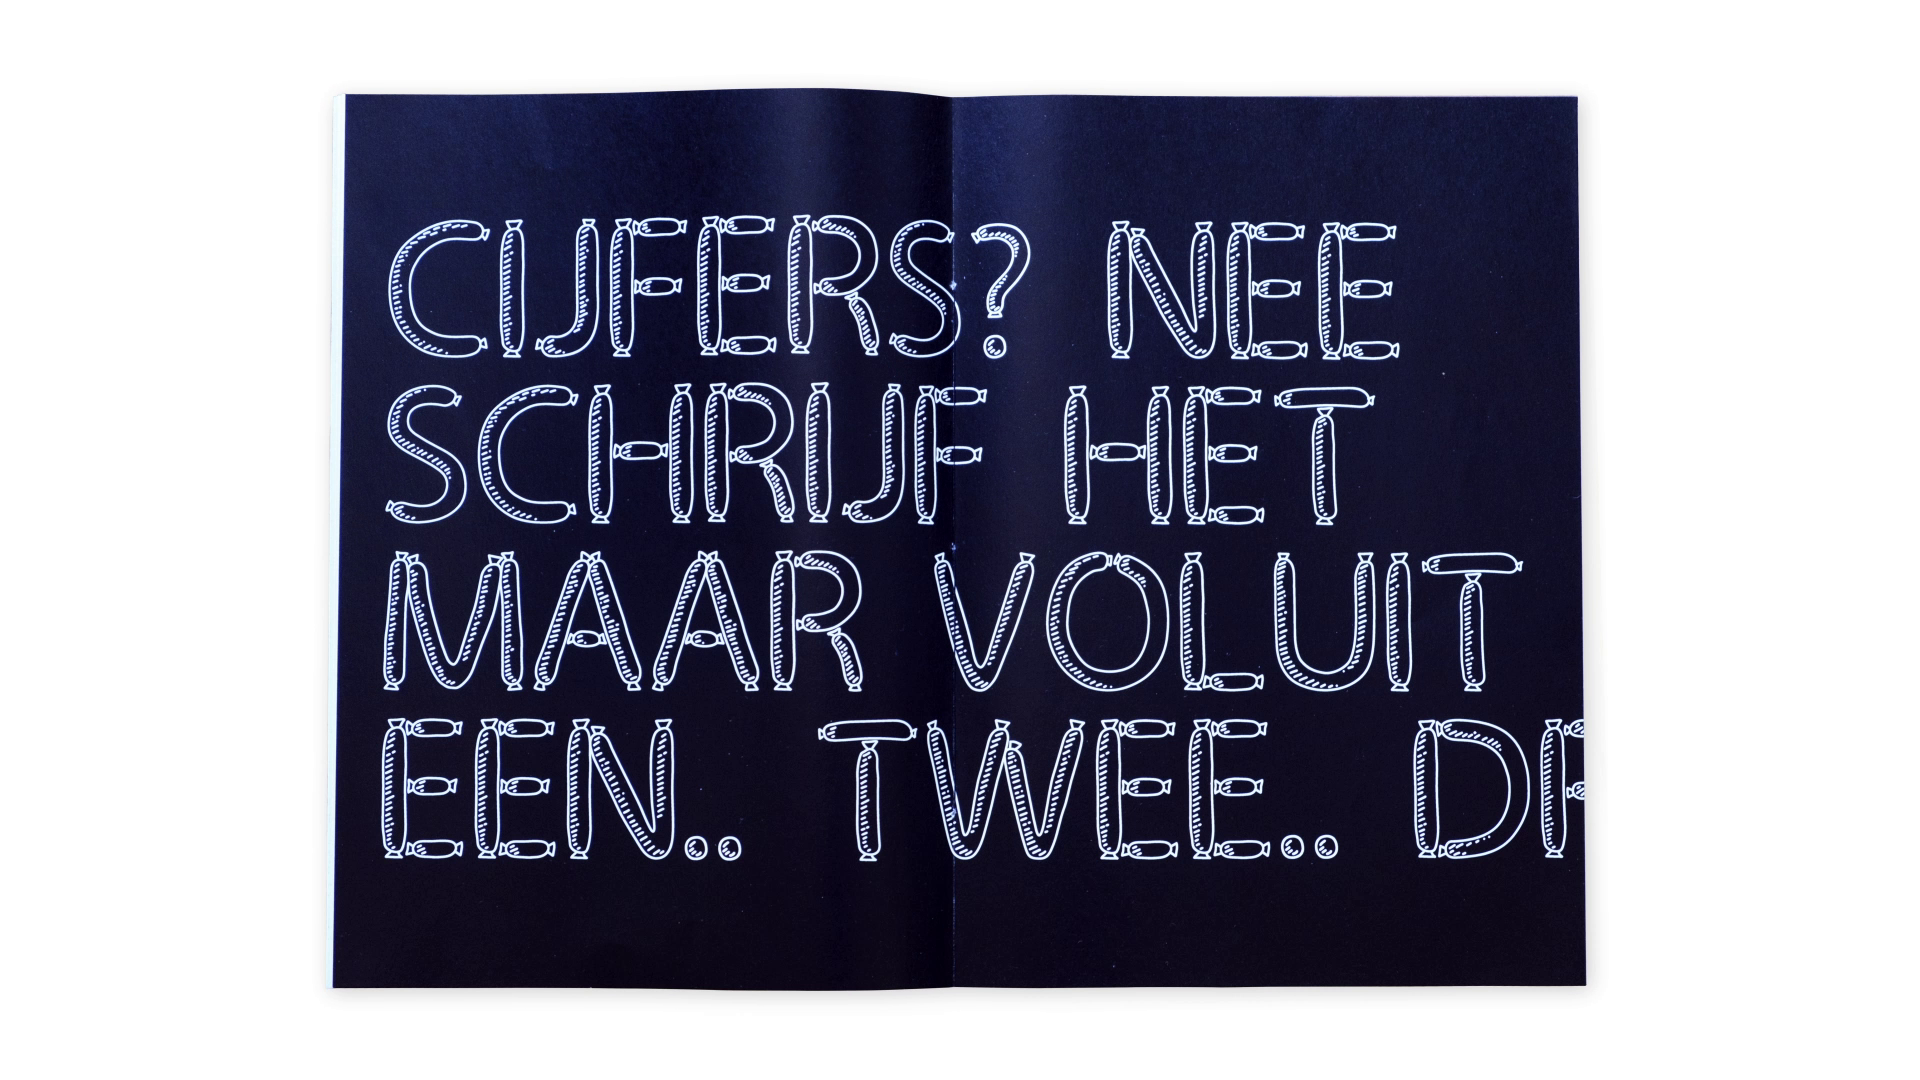 CIJFERS? NEE
SCHRIJF HET
MAAR VOLUIT
EEN.. TWEE.. D